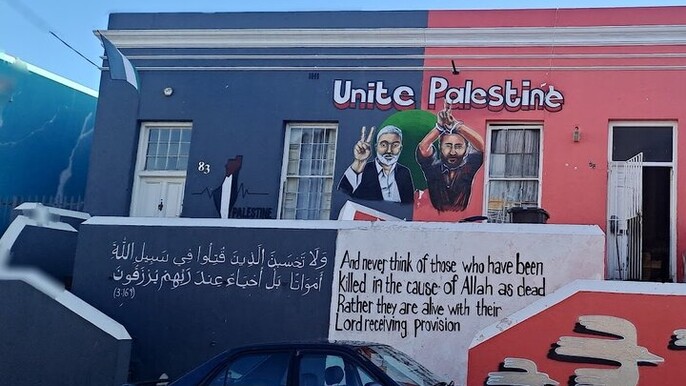 Unite Palestine
83
PALESTINE
وَلَا تَحْسَبَنَّ الَّذِينَ قُتِلُوا فِي سَبِيلِ اللَّهِ
أَمْوَاتًا بَلْ أَحْيَاءٌ عِندَ رَبِّهِمْ يُرْزَقُونَ
(3:169)
And never think of those who have been
killed in the cause of Allah as dead
Rather they are alive with their
Lord receiving provision